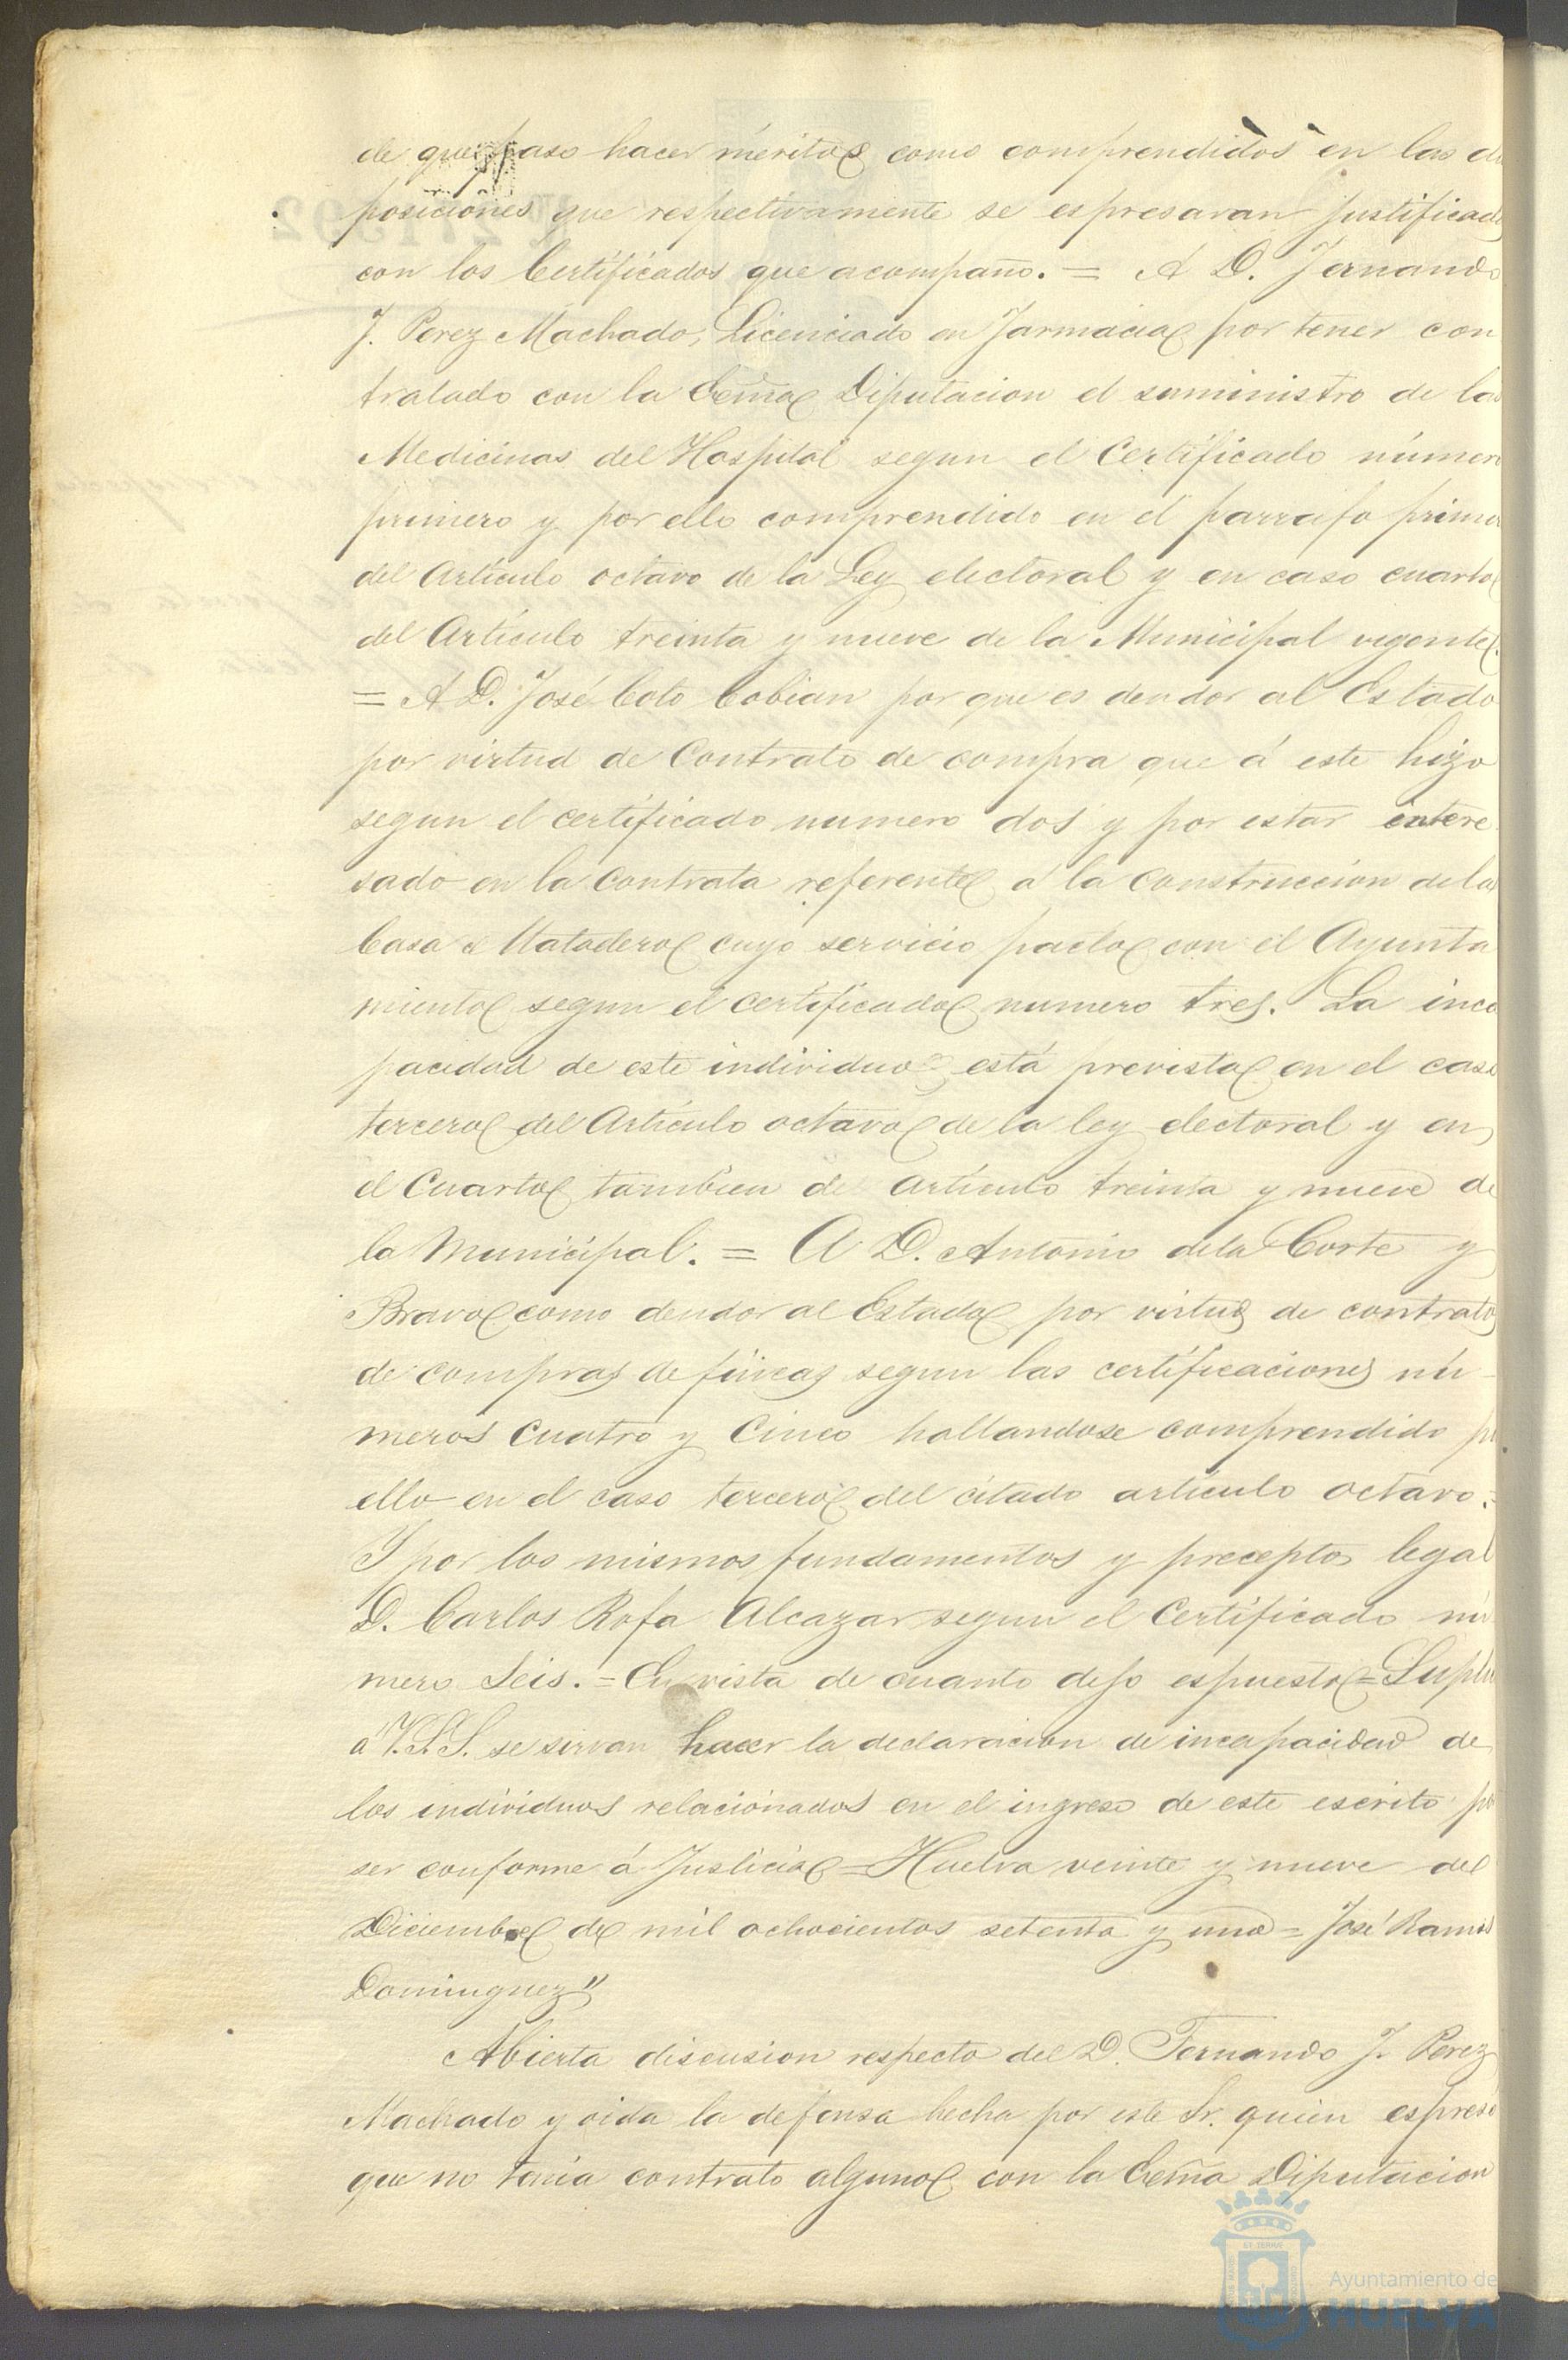 de que paso hacer méritos como comprendidos en las di
posiciones que respectivamente se espresaran justificado
con los Certificados que acompaño. = A D. Fernando
J. Perez Machado, Licenciado en Farmacia por tener con
tratado con la Ecma Diputacion el suministro de las
Medicinas del Hospital segun el Certificado número
primero y por ello comprendido en el parrafo primer
del Artículo octavo de la Ley electoral y en caso cuarto
del Artículo treinta y nueve de la Municipal vigente.
= A D. José Coto Cobian por que es deudor al Estado
por virtud de Contrato de compra que á este hizo
segun el certificado numero dos y por estar intere
sado en la Contrata referente á la Construccion de la
Casa Matadero cuyo servicio pacto con el Ayunta
miento segun el certificado numero tres. La inca
pacidad de este individuo está prevista en el caso
tercero del Artículo octavo de la ley electoral y en
el Cuarto tambien de artículo treinta y nueve de
la Municipal. = A D. Antonio de la Corte y
Bravo como deudor al Estado por virtud de contrato
de compras de fincas segun las certificaciones nú-
meros Cuatro y Cinco hallandose comprendido p
ello en el caso tercero del citado artículo octavo. =
Y por los mismos fundamentos y preceptos legal
D. Carlos Rofa Alcazar segun el Certificado nú
mero Seis. = En vista de cuanto dejo espuesto = Suplic
á V.S.S. se sirvan hacer la declaracion de incapacidad de
los individuos relacionados en el ingreso de este escrito p
ser conforme á Justicia = Huelva veinte y nueve del
Diciembre de mil ochocientos setenta y uno = José Ramos
Dominguez"
Abierta discusion respecto del D. Fernando J. Perez
Machado y oida la defensa hecha por este Sr. quien espresó
que no tenia contrato alguno con la Ecma Diputacion
Ayuntamiento de
HUELVA